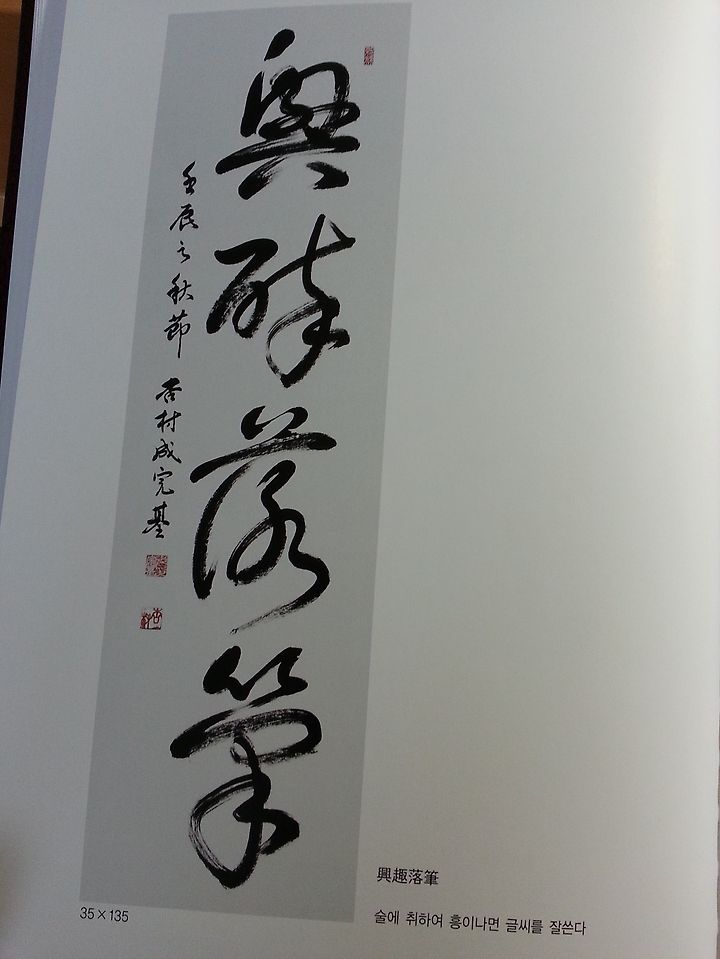 興醉落筆
壬辰之秋節 杏村成完基
興趣落筆
35×135
술에 취하여 흥이나면 글씨를 잘쓴다